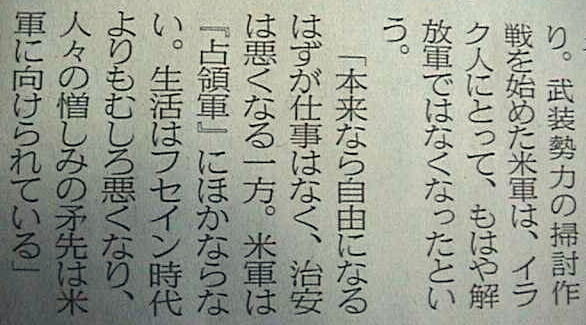 り。武装勢力の掃討作
戦を始めた米軍は、イラ
ク人にとって、もはや解
放軍ではなくなったとい
う。
「本来なら自由になる
はずが仕事はなく、治安
は悪くなる一方。米軍は
『占領軍』にほかならな
い。生活はフセイン時代
よりもむしろ悪くなり、
人々の憎しみの矛先は米
軍に向けられている」